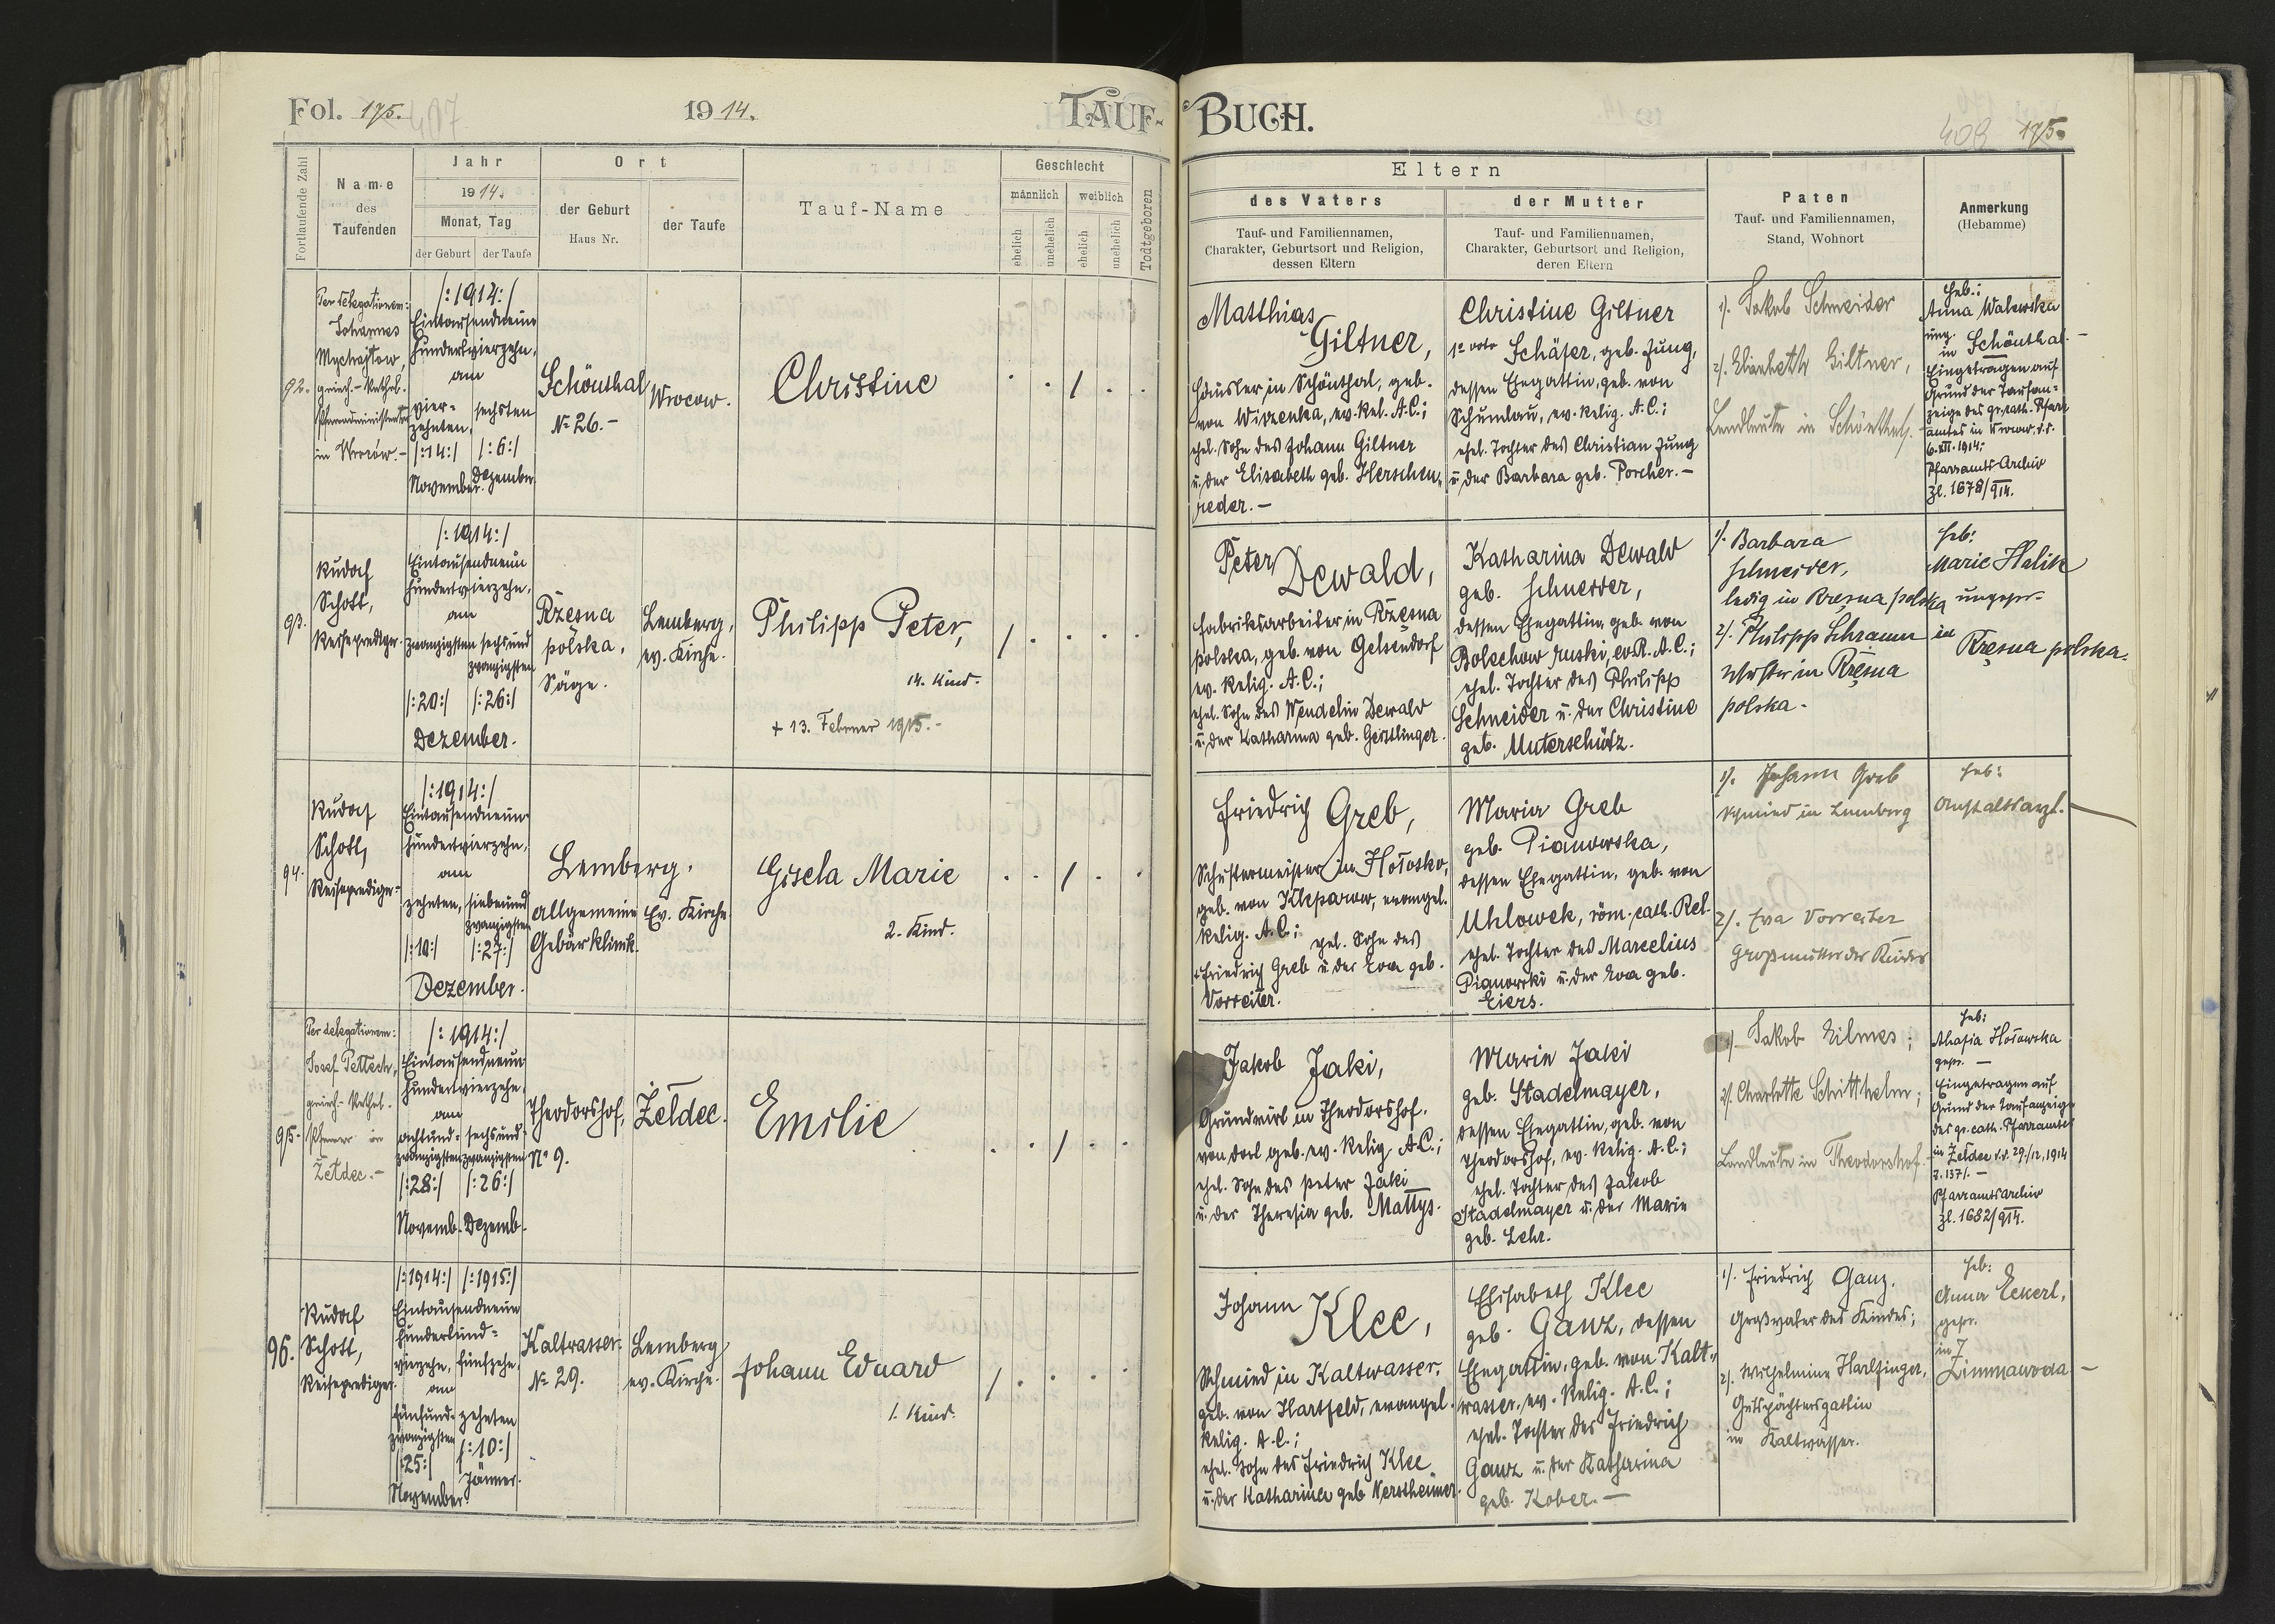 Fol. 175.
1914.
TAUF-
BUCH.
408 175.
Fortlaufende Zahl
Name
des
Taufenden
Jahr
1914.
Monat, Tag
der Geburt
der Taufe
Ort
der Geburt
Haus Nr.
der Taufe
Tauf-Name
Geschlecht
männlich
weiblich
ehelich
unehelich
ehelich
unehelich
Todtgeboren
Eltern
des Vaters
Tauf- und Familiennamen,
Charakter, Geburtsort und Religion,
dessen Eltern
der Mutter
Tauf- und Familiennamen,
Charakter, Geburtsort und Religion,
deren Eltern
Paten
Tauf- und Familiennamen,
Stand, Wohnort
Anmerkung
(Hebamme)
92.
Per delegationem:
Johannes
griech.-kathol.
in Wrocow.-
/:1914:/
Eintausendneun
hundertvierzehn,
am
vier-
zehnten,
/:14:/
November.
sechsten
/:6:/
Dezember
Schönthal
No 26.-
Wrocow.
Christine
Matthias
Giltner,
Häusler in Schönthal, geb.
von Wizenka, ev. Rel. A.C.;
ehel. Sohn des Johann Giltner
u. der Elisabeth geb. Herschen-
reder.-
Christine Giltner
1o voto Schäfer, geb. Jung,
dessen Ehegattin, geb. von
Schumlau, ev. Relig. A.C.;
ehel. Tochter des Christian Jung
u. der Barbara geb. Porcher.-
1/. Jakob Schneider
2/. Elisabeth Giltner,
Landleute in Schönthal.
Heb.:
Anna Walewska
ung.
in Schönthal.-
Eingetragen auf
Grund der Taufan-
zeige des gr. cath. Pfarr
amtes in Wrocow, d.d.
6.XII.1914;
Pfarramts Archiv
Zl. 1678/914.
93.
Rudolf
Schott,
Reiseprediger.
/:1914:/
Eintausendneun
hundertvierzehn,
am
zwanzigsten
/:20:/
sechsund
zwanzigsten
/:26:/
Dezember.
Rzęsna
polska,
Säge.
Lemberg,
ev. Kirche.
Philipp Peter,
14. Kind.
+ 13. Februar 1915.-
Peter
Dewald,
Fabriksarbeiter in Rzęsna
polska, geb. von Gelsendorf
ev. Relig. A.C.;
ehel. Sohn des Wendelin Dewald
u. der Katharina geb. Gerstlinger.
Katharina Dewald
geb. Schneider,
dessen Ehegattin, geb. von
Bolechow ruski, ev. R. A.C.;
ehel. Tochter des Philipp
Schneider u. der Christine
geb. Unterschütz.
1/. Barbara
Schneider,
ledig in Rzęsna polska
2/. Philipp Schramm
in Rzęsna
polska.
Heb:
Marie Halik
ungepr.
in
Rzęsna polska.
94.
Rudolf
Schott,
Reiseprediger-
/:1914:/
Eintausendneun-
hundertvierzehn,
am
zehnten,
/:10:/
siebenund
zwanzigsten
/:27:/
Dezember.
Lemberg.
allgemeine
Gebärklinik.
Ev. Kirche
Gisela Marie
2. Kind.
Friedrich Greb,
Schustermeister in Hołosko,
geb. von Kleparow, evangel.
Relig. A.C.; ehel. Sohn des
Friedrich Greb u. der Eva geb.
Vorreiter.
Maria Greb
geb. Pianowska,
dessen Ehegattin, geb. von
Uhlowek, röm. cath. Rel.
ehel. Tochter des Marcelius
Pianowski u. der Eva geb.
Eiers.
1/. Johann Greb
Schmied in Lemberg
2/. Eva Vorreiter
Großmutter des Kindes
Heb:
Anstaltsarzt.
95.
Per delegationem:
Josef
griech.-kathol.
Pfarrer in
Żełdec.-
/:1914:/
Eintausendneun
hundertvierzehn,
am
achtund-
zwanzigsten
/:28:/
Novemb.
sechsund-
zwanzigsten
/:26:/
Dezemb.
Theodorshof,
No 9.
Żełdec.
Emilie
Jakob Jaki,
Grundwirt in Theodorshof.
von dort geb. ev. Relig. A.C.;
ehel. Sohn des Peter Jaki
u. der Theresia geb. Mattys.
Marie Jaki
geb. Stadelmayer,
dessen Ehegattin, geb. von
Theodorshof, ev. Relig. A.C.;
ehel. Tochter des Jakob
Stadelmayer u. der Marie
geb. Lehr.
1/. Jakob Ilmes;
2/. Charlotte Schritthelm;
Landleute in Theodorshof.
Heb:
Hołowska
gepr. -
Eingetragen auf
Grund der Taufanzeige
des gr. cath. Pfarramtes
in Żełdec d.d. 29./12. 1914
Z. 137/.-
Pfarramtsarchiv
Zl. 1682/914.
96.
Rudolf
Schott,
Reiseprediger.
/:1914:/
/:1915:/
Eintausendneun
hundertund-
vierzehn, fünfzehn,
am
fünfund-
zwanzigsten
/:25:/
November.
zehnten
/:10:/
Jänner.
Kaltwasser.
No 29.
Lemberg
ev. Kirche.
Johann Eduard
1. Kind.
Johann
Klee,
Schmied in Kaltwasser,
geb. von Hartfeld, evangel.
Relig. A.C.;
ehel. Sohn des Friedrich Klee
u. der Katharina geb Nerstheimer.
Elisabeth Klee
geb. Ganz, dessen
Ehegattin, geb. von Kalt-
wasser, ev. Relig. A.C.;
ehel. Tochter des Friedrich
Ganz u. der Katharina
geb. Kober.-
1/. Friedrich Ganz.
Großvater des Kindes;
2/. Wilhelmine Harlfinger,
Gutspächtersgattin
in Kaltwasser.
Heb:
Anna Eckert,
gepr.
in
Zimnawoda.-